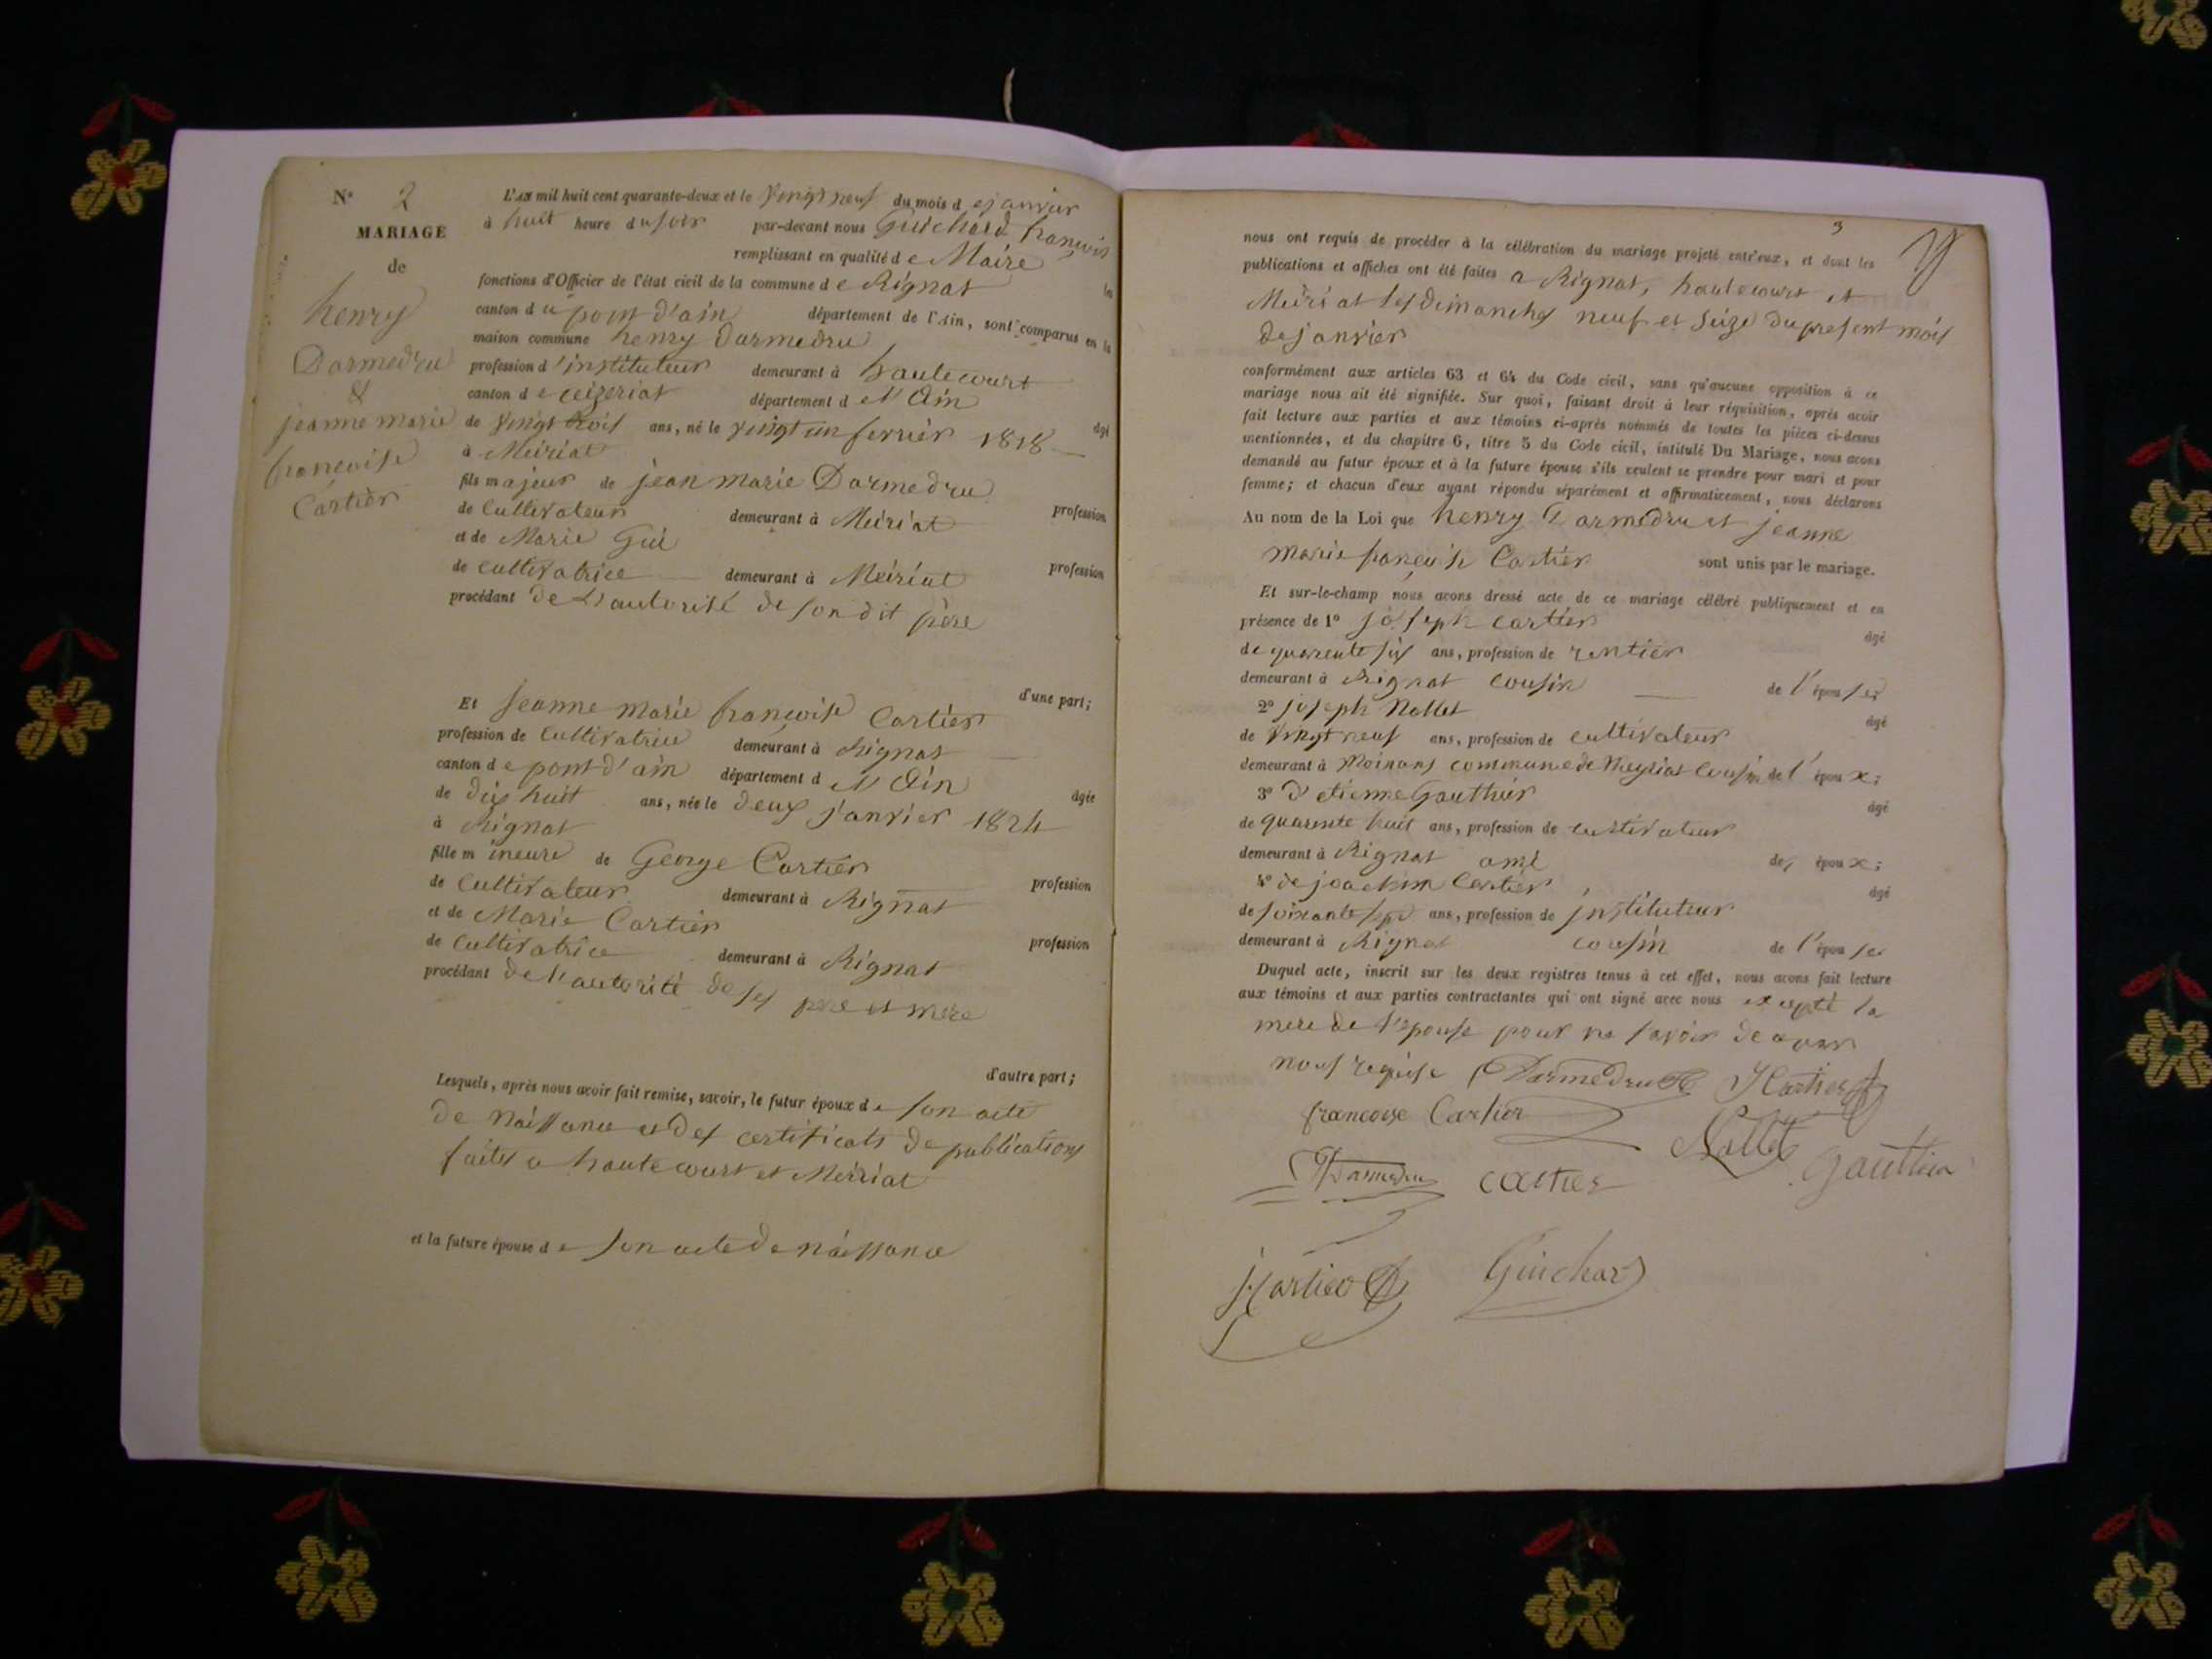 N° 2
MARIAGE
de
henry
Darmedru
&
jeanne marie
francoise
Cartier
L'an mil huit cent quarante-deux et le vingt neuf du mois d ejanvier
à huit heure du soir par-devant nous Guichard françois
remplissant en qualité d e Maire les
fonctions d'Officier de l'état civil de la commune d e Rignat
canton d u pont d'ain département de l'Ain, sont comparus en la
maison commune henry darmedru
profession d'instituteur demeurant à hautecourt
canton d e ceizeriat département d el'Ain âgé
de vingt trois ans, né le vingt un fevrier 1818
à Meiriat
fils majeur de jean marie Darmedru profession
de Cultivateur demeurant à Meiriat
et de Marie Gui profession
de cultivatrice demeurant à Meiriat
procédant de L'autorité de son dit père
d'une part;
Et jeanne marie françoise Cartier
profession de Cultivatrice demeurant à Rignat
canton d e pont d'ain département d el'Ain âgée
de dix huit ans, née le deux janvier 1824
à Rignat
fille mineure de George Cartier profession
de Cultivateur demeurant à Rignat
et de Marie Cartier profession
de Cultivatrice demeurant à Rignat
procédant de l'autorité de ses père et mere
d'autre part;
Lesquels, après nous avoir fait remise, savoir, le futur époux d e son acte
de naissance et des certificats de publications
faites a hautecourt et Meiriat
et la future épouse d e son acte de naissance
3
nous ont requis de procéder à la célébration du mariage projeté entr'eux, et dont les
publications et affiches ont été faites a Rignat, hautecourt et
Meiriat les dimanches neuf et seize du present mois
de janvier
conformément aux articles 63 et 64 du Code civil, sans qu'aucune opposition à ce
mariage nous ait été signifiée. Sur quoi, faisant droit à leur réquisition, après avoir
fait lecture aux parties et aux témoins ci-après nommés de toutes les pièces ci-dessus
mentionnées, et du chapitre 6, titre 5 du Code civil, intitulé Du Mariage, nous avons
demandé au futur époux et à la future épouse s'ils veulent se prendre pour mari et pour
femme; et chacun d'eux ayant répondu séparément et affirmativement, nous déclarons
Au nom de la Loi que henry Darmedru et jeanne
marie françoise Cartier sont unis par le mariage.
Et sur-le-champ nous avons dressé acte de ce mariage célébré publiquement et en
présence de 1° joseph cartier âgé
de quarente six ans, profession de rentier
demeurant à Rignat cousin de l'épouse
2° joseph Nallet âgé
de vingt neuf ans, profession de cultivateur
demeurant à Moinans commune de Meyriat Cousin de l'époux;
3° d'etienne Gauthier âgé
de quarente huit ans, profession de cultivateur
demeurant à Rignat ami des époux;
4° de joachim Cartier âgé
de soixante sept ans, profession de jnstituteur
demeurant à Rignat cousin de l'épouse
Duquel acte, inscrit sur les deux registres tenus à cet effet, nous avons fait lecture
aux témoins et aux parties contractantes qui ont signé avec nous excepté la
mere de l'epouse pour ne savoir de
nous requise Darmedru H Cartier
francoise Cartier
Nallet
Darmedru cartier Gauthier
Cartier Guichard